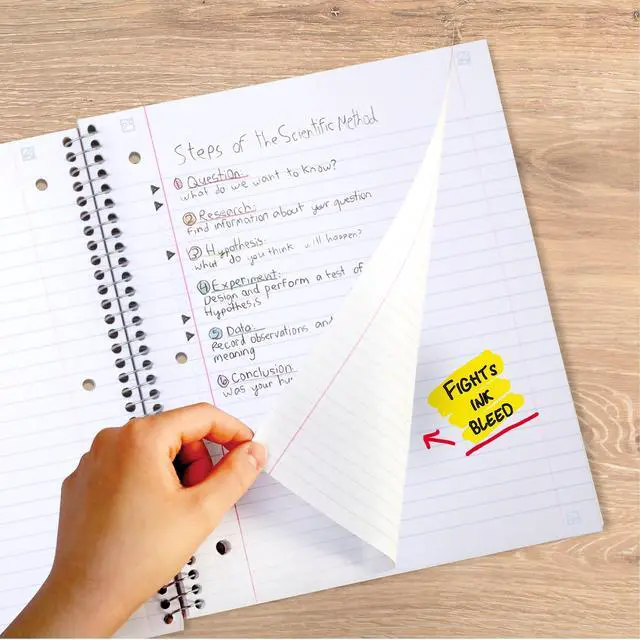 Steps of the Scientific Method
① Question
what do we want to know?
② Research:
Find information about your question
③ Hypothesis:
what do you think will happen?
④ Experiment:
Design and perform a test of
Hypothesis
⑤ Data:
Record observations and
meaning
⑥ Conclusion
was your
FIGHTS
INK
BLEED